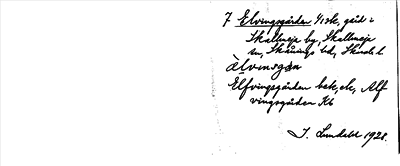 7 Elvingsgården 1/1 sk, gård i
Skallmeja by, Skallmeja
sn, Skånings hd, Skarab. l.
Elfvingsgården bsk, ek, Alf
vingsgården Kb
J. Lundahl 1928.